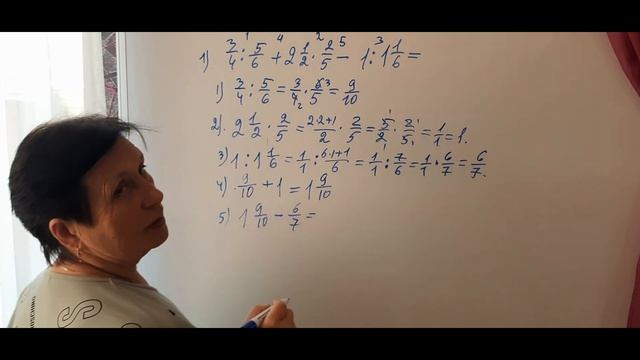 1) 3/4 : 5/6 + 2 1/2 · 2/5 − 1 : 1 1/6 =
1) 3/4 : 5/6 = 3/4 · 6/5 = 9/10
2). 2 1/2 · 2/5 = 2·2+1/2 · 2/5 = 5/2 · 2/5 = 1/1 = 1.
3) 1 : 1 1/6 = 1/1 : 6·1+1/6 = 1/1 : 7/6 = 1/1 · 6/7 = 6/7.
4) 9/10 + 1 = 1 9/10
5) 1 9/10 − 6/7 =